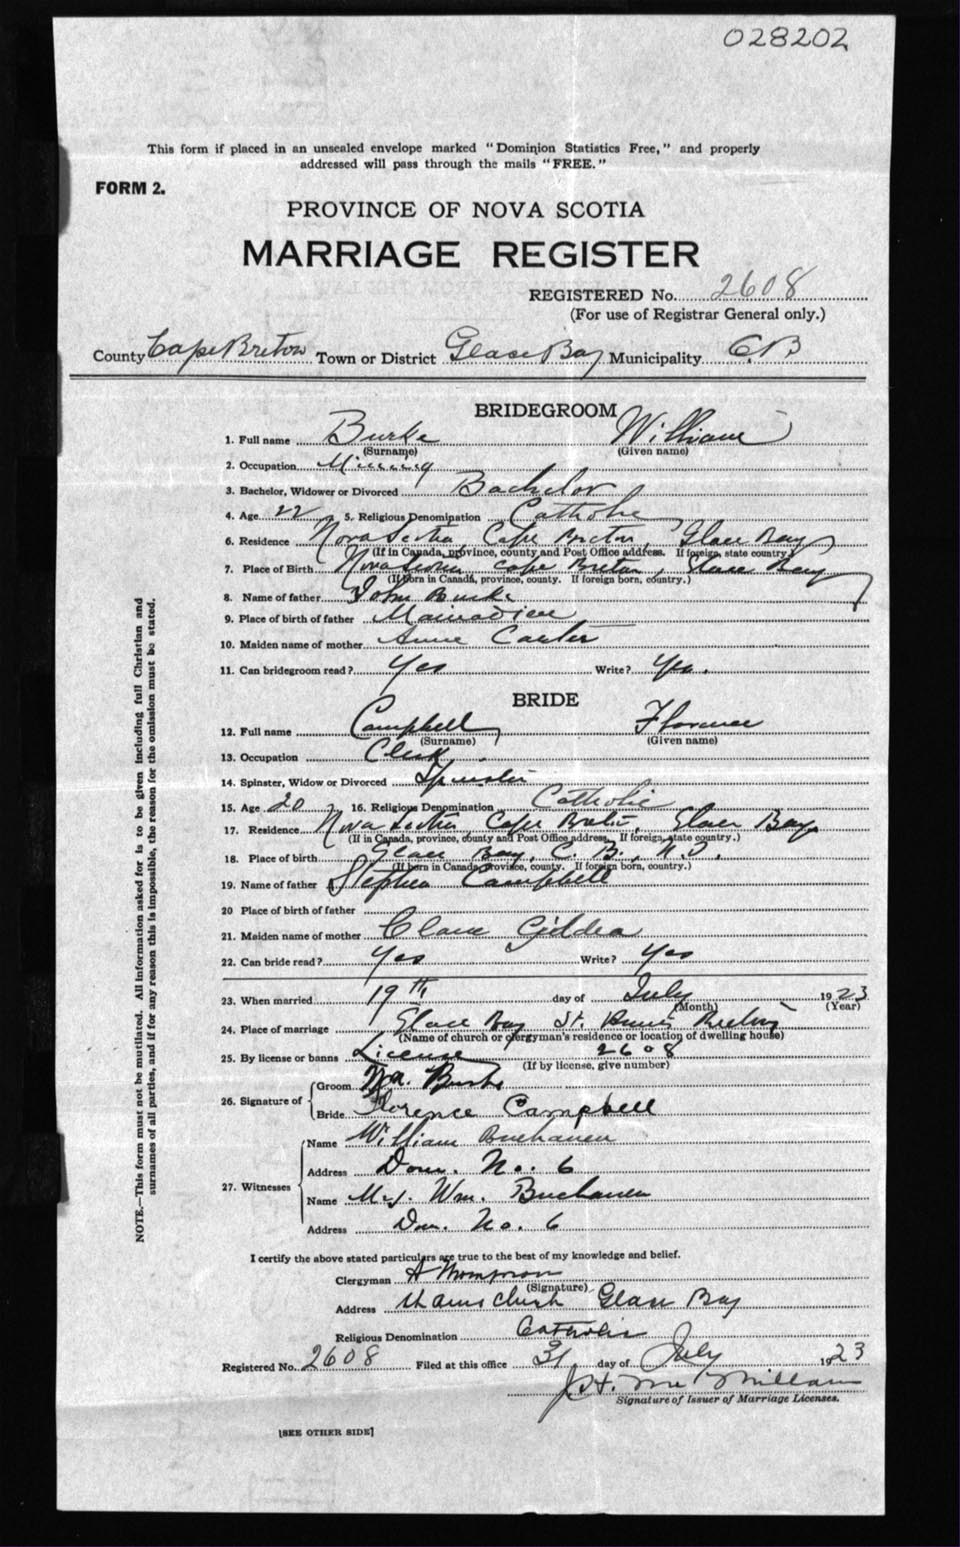 028202
This form if placed in an unsealed envelope marked "Dominion Statistics Free," and properly
addressed will pass through the mails "FREE."
FORM 2.
PROVINCE OF NOVA SCOTIA
MARRIAGE REGISTER
REGISTERED No. 2608
(For use of Registrar General only.)
County Cape Breton Town or District Glace Bay Municipality C.B
BRIDEGROOM
1. Full name Burke William
(Surname) (Given name)
2. Occupation Mining
3. Bachelor, Widower or Divorced Bachelor
4. Age 22 5. Religious Denomination Catholic
6. Residence Nova Scotia, Cape Breton, Glace Bay
(If in Canada, province, county and Post Office address. If foreign, state country.)
7. Place of Birth Nova Scotia Cape Breton, Glace Bay
(If born in Canada, province, county. If foreign born, country.)
8. Name of father John Burke
9. Place of birth of father Mainadieu
10. Maiden name of mother Anne
11. Can bridegroom read? Yes Write? Yes.
BRIDE
12. Full name Campbell, Florence
(Surname) (Given name)
13. Occupation Clerk.
14. Spinster, Widow or Divorced Spinster
15. Age 20 16. Religious Denomination Catholic
17. Residence Nova Scotia, Cape Breton, Glace Bay
(If in Canada, province, county and Post Office address. If foreign, state country.)
18. Place of birth Glace Bay, C. B., N.S.
(If born in Canada, province, county. If foreign born, country.)
19. Name of father Stephen Campbell
20 Place of birth of father
21. Maiden name of mother Clare Gildea
22. Can bride read? Yes Write? Yes
23. When married 19th day of July 1923
(Month) (Year)
24. Place of marriage Glace Bay St. Anne's
(Name of church or clergyman's residence or location of dwelling house)
25. By license or banns License 2608
(If by license, give number)
26. Signature of Groom Wm. Burke
Bride Florence Campbell
27. Witnesses Name William Buchanan
Address Dom. No. 6
Name Mrs. Wm. Buchanan
Address Dom. No. 6
I certify the above stated particulars are true to the best of my knowledge and belief.
Clergyman A Thompson
(Signature)
Address Glace Bay
Religious Denomination Catholic
Registered No. 2608 Filed at this office 31 day of July 1923
Signature of Issuer of Marriage Licenses.
[SEE OTHER SIDE]
NOTE.—This form must not be mutilated. All information asked for is to be given including full Christian and
surnames of all parties, and if for any reason this is impossible, the reason for the omission must be stated.